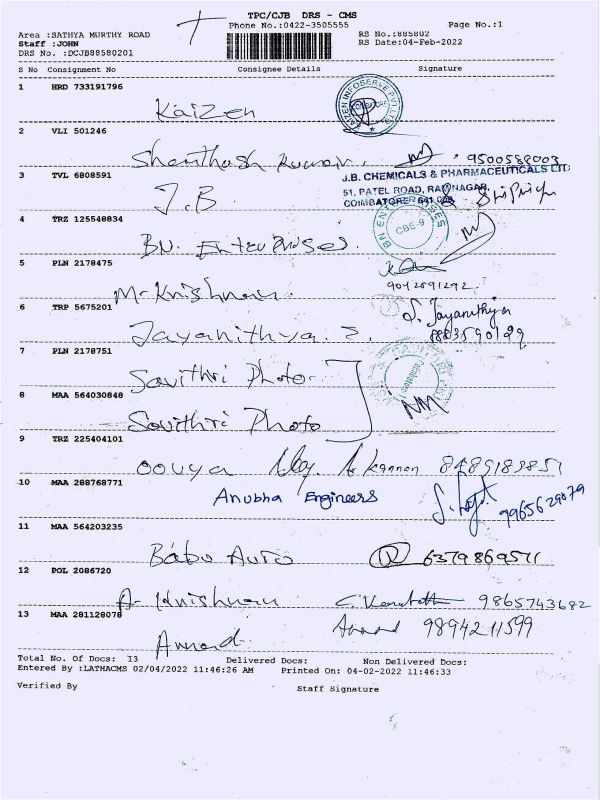 TPC/CJB DRS - CMS
Phone No.:0422-3505555 Page No.:1
Area :SATHYA MURTHY ROAD RS No.:885802
Staff :JOHN RS Date:04-Feb-2022
DRS No. :DCJB88580201
S No Consignment No Consignee Details Signature
1 HRD 733191796
Kaizen KAIZEN INFOSERVE PVT LTD
2 VLI 501246
Shanthosh Kumar. 9500558003
3 TVL 6808591 J.B. CHEMICALS & PHARMACEUTICALS LTD
J.B 51, PATEL ROAD, RAM NAGAR,
COIMBATORE 641 009
4 TRZ 125548834
BN. Enterprises. BN ENTERPRISES CBE-9
5 PLN 2178475
Mr Krishnan 9042891292
6 TRP 5675201
Jayanithya. S. S. Jayanithya
8883590199
7 PLN 2178751
Savithri Photo
8 MAA 564030848
Savithri Photo
9 TRZ 225404101
oouya Kannan 8489189851
10 MAA 288768771
Anubha Engineers 9965629879
11 MAA 564203235
Babu Auto 6379869571
12 POL 2086720
A. Krishnan 9865743682
13 MAA 281128078
Anand Anand 9894211599
Total No. Of Docs: 13 Delivered Docs: Non Delivered Docs:
Entered By :LATHACMS 02/04/2022 11:46:26 AM Printed On: 04-02-2022 11:46:33
Verified By Staff Signature